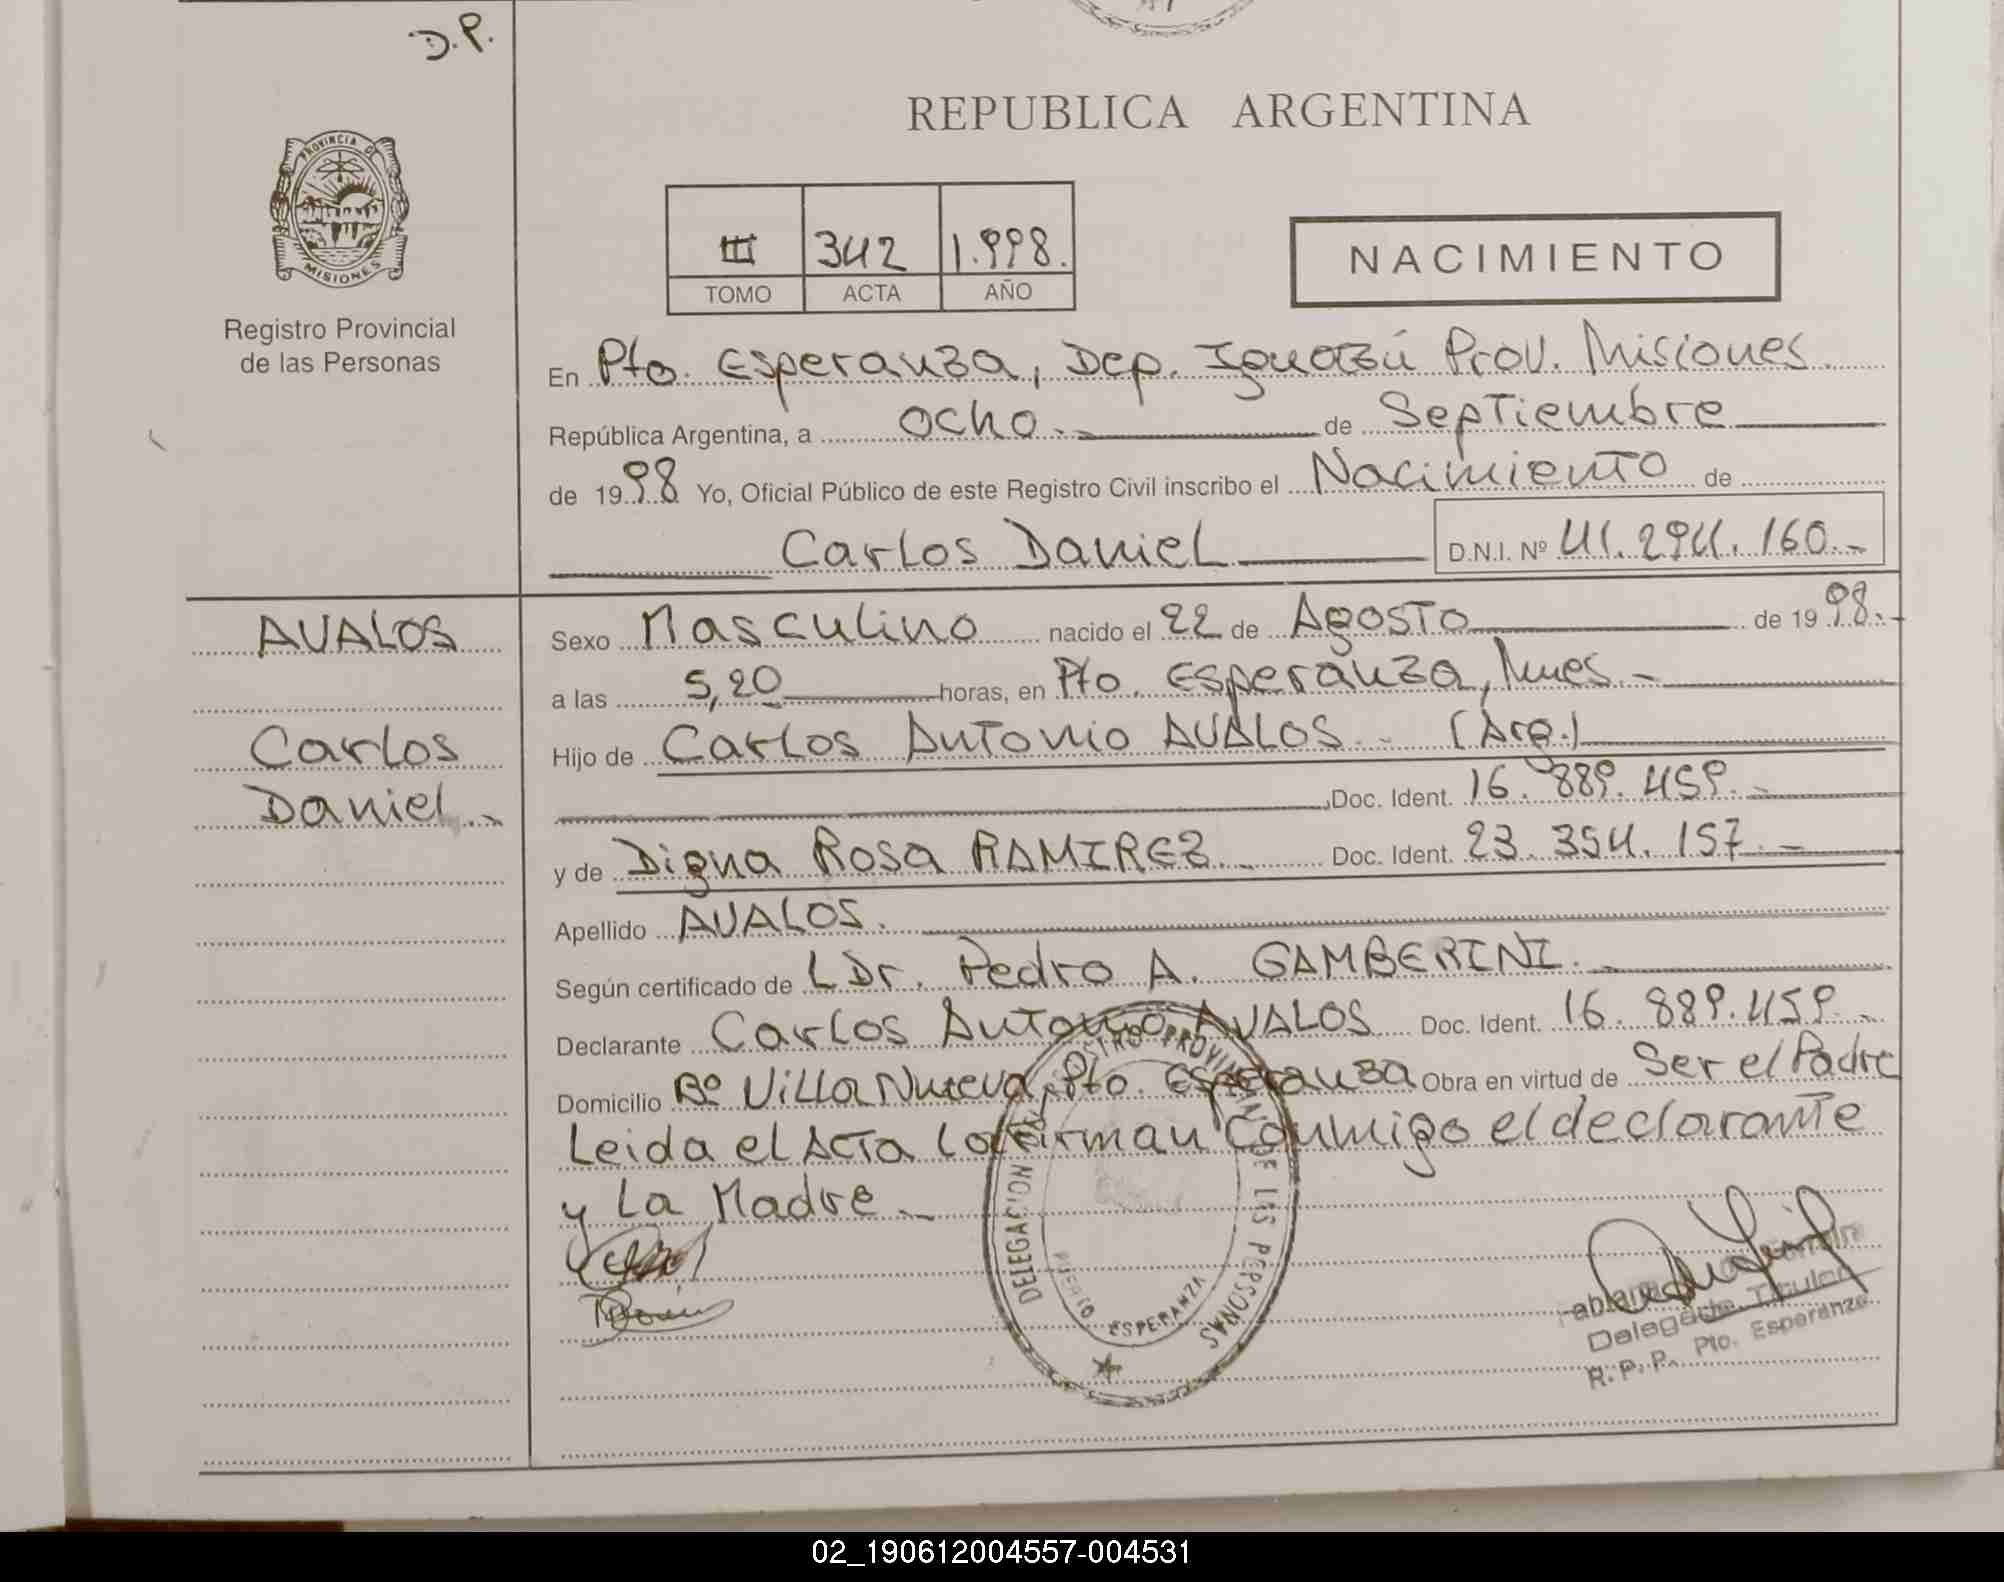 D.P.
REPUBLICA ARGENTINA
PROVINCIA DE
MISIONES
III 342 1.998.
TOMO ACTA AÑO
NACIMIENTO
Registro Provincial
de las Personas
En Pto. Esperanza, Dep. Iguazú Prov. Misiones
República Argentina, a ocho.- de Septiembre
de 1998 Yo, Oficial Público de este Registro Civil inscribo el Nacimiento de
Carlos Daniel D.N.I. Nº 41.294.160.-
AVALOS
Carlos
Daniel.-
Sexo Masculino nacido el 22 de Agosto de 1998.-
a las 5,20 horas, en Pto. Esperanza, Mnes.-
Hijo de Carlos Antonio AVALOS.- (Arg.)
Doc. Ident. 16.889.459.-
y de Digna Rosa RAMIREZ.- Doc. Ident. 23.354.157.-
Apellido AVALOS.
Según certificado de L Dr. Pedro A. GAMBERINI.-
Declarante Carlos Antonio AVALOS Doc. Ident. 16.889.459.-
Domicilio Bº Villa Nueva, Pto. Esperanza Obra en virtud de Ser el Padre
Leida el Acta la firman conmigo el declarante
y La Madre.-
DELEGACION REGISTRO PROVINCIAL DE LAS PERSONAS
PUERTO ESPERANZA
Delegada Titular
R.P.P. Pto. Esperanza
02_190612004557-004531